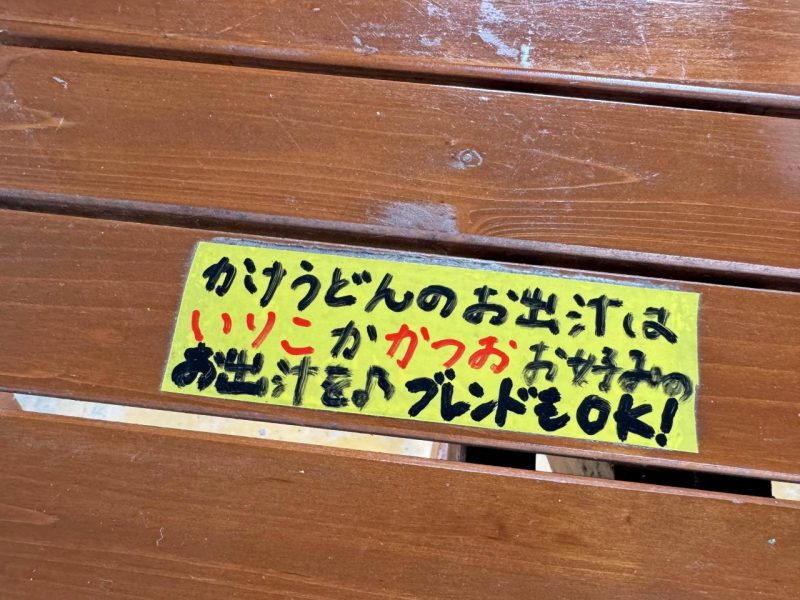 かけうどんのお出汁は
いりこかかつおお好みの
お出汁を♪ブレンドもOK!